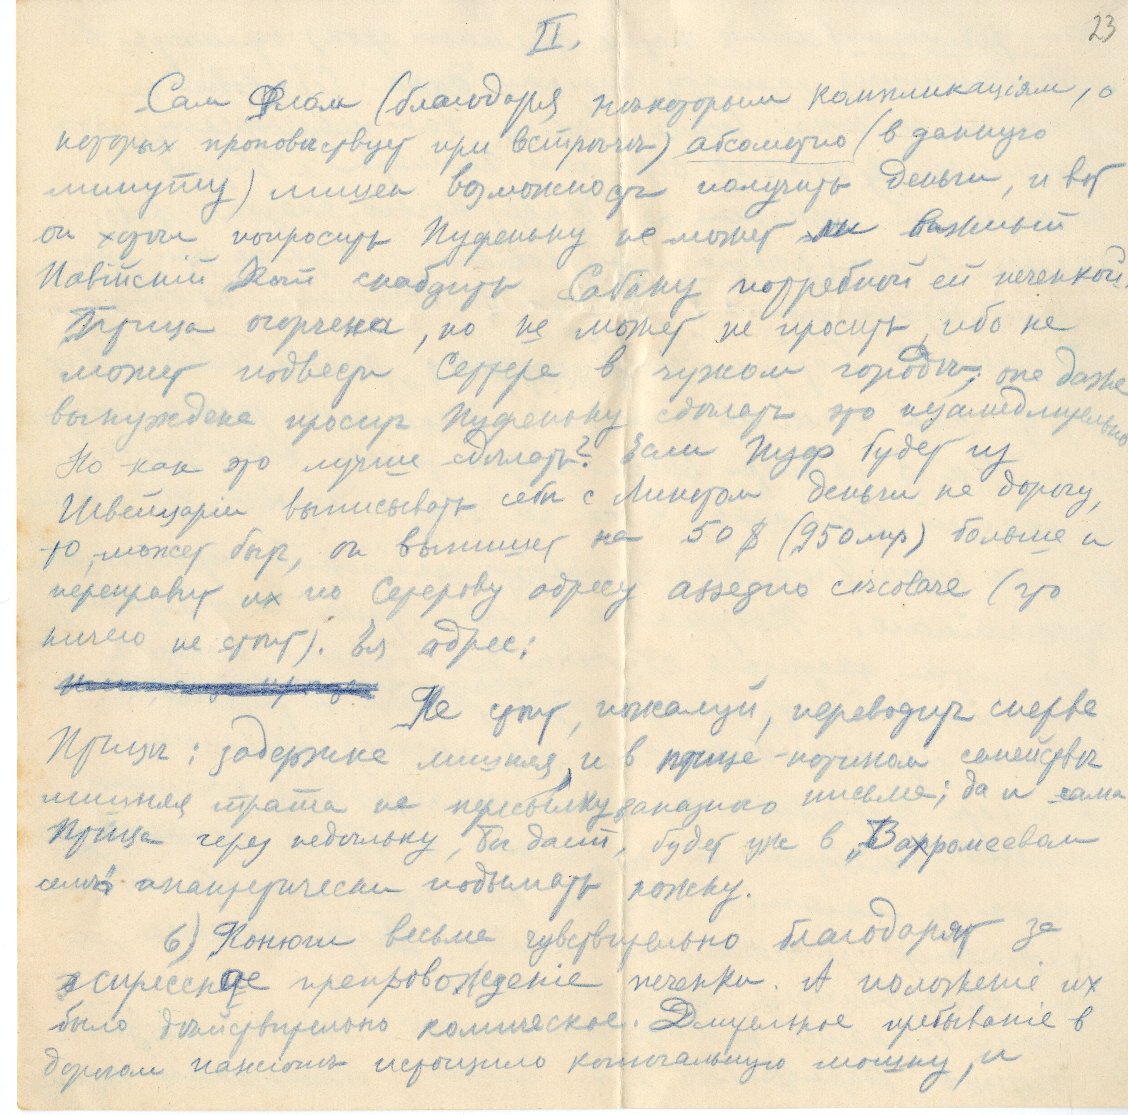 II.
23
Сам Флом (благодаря нѣкоторым компликаціям, о
которых проповѣствует при встрѣчѣ) абсолютно (в данную
минуту) лишен возможность получить деньги, и вот
он хотѣл попросить Пуфеньку не может ли важный
Павійскій Кот снабдить Собаку потребной ей печенкой.
Птица огорчена, но не может не просить, ибо не
может подвести Сеттера в чужом городѣ, она даже
вынуждена просить Пуфеньку сдѣлать это незамедлительно
Но как это лучше сдѣлать? Если Пуф будет из
Швейцаріи выписывать себѣ с деньги на дорогу,
то может быть, он выпишет на 50 $ (950 лир) больше и
переправит их по Сетерову адресу (это
ничего не стоит). Ея адрес:
Не стоит, пожалуй, переводить сперва
Птицѣ: задержка лишняя, и в птице-котином семействѣ
лишняя трата на пересылку заказного письма; да и сама
Птица через недѣльку, Бог даст, будет уж в „Варромеевом
селѣ" апапетически подымать ножку.
6) Конюги весьма чувствительно благодарят за
экспрессное препровожденіе печенки. А положеніе их
было дѣйствительно комическое. Длительное пребываніе в
дорогом пансіонѣ истощило котогальшую мошну, и